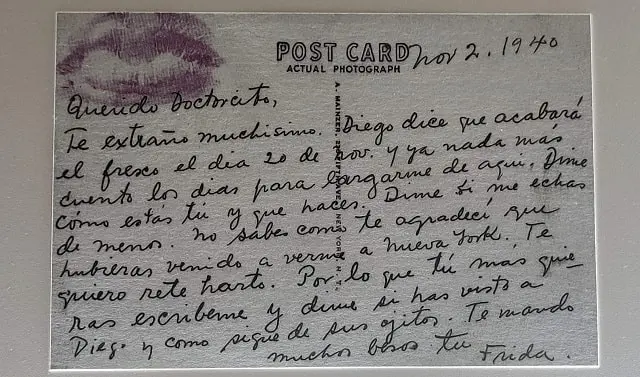 POST CARD
ACTUAL PHOTOGRAPH
Nov 2. 1940
Querido Doctorcito,
Te extraño muchísimo. Diego dice que acabará
el fresco el dia 20 de Nov. y ya nada más
cuento los dias para largarme de aquí. Dime
cómo estas tú y que haces. Dime si me echas
de menos. No sabes como te agradecí que
hubieras venido a verme a Nueva York. Te
quiero rete harto. Por lo que tú mas quie-
ras escribeme y dime si has visto a
Diego y como sigue de sus ojitos. Te mando
muchos besos tu Frida.
A. MAINZER, NEW YORK, N. Y.